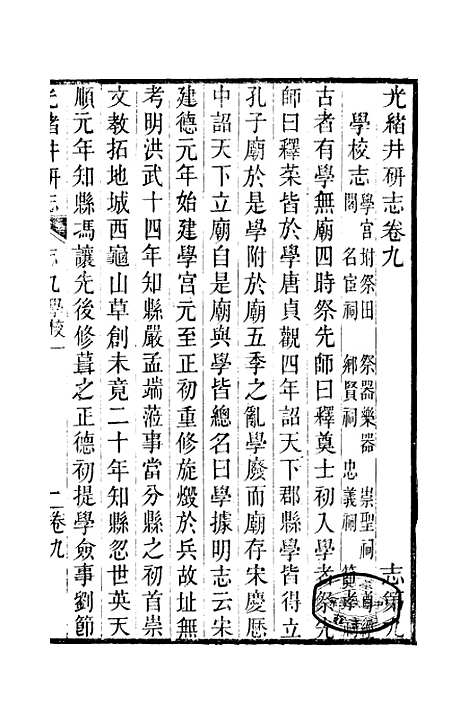 光緒井研志卷九
志第九
學校志
學官坿祭田 祭器樂器 崇聖祠 尊經
閣 名宦祠 鄉賢祠 忠義祠 節孝祠
古者有學無廟四時祭先師曰釋奠士初入學者祭先
師曰釋菜皆於學唐貞觀四年詔天下郡縣學皆得立
孔子廟於是學附於廟五季之亂學廢而廟存宋慶厯
中詔天下立廟自是廟與學皆總名曰學據明志云宋
建德元年始建學宮元至正初重修旋燬於兵故址無
考明洪武十四年知縣嚴孟端蒞事當分縣之初首崇
文教拓地城西龜山草創未竟二十年知縣忽世英天
順元年知縣馮讓先後修葺之正德初提學僉事劉節
光緒井研志
志九學校一
二卷九